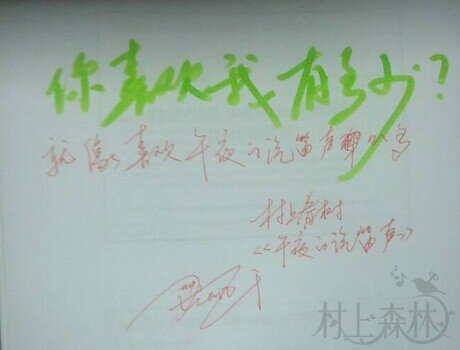 你喜欢我有多少?
就像喜欢午夜的汽笛声那么多
村上春树
《午夜的汽笛声》
村上森林